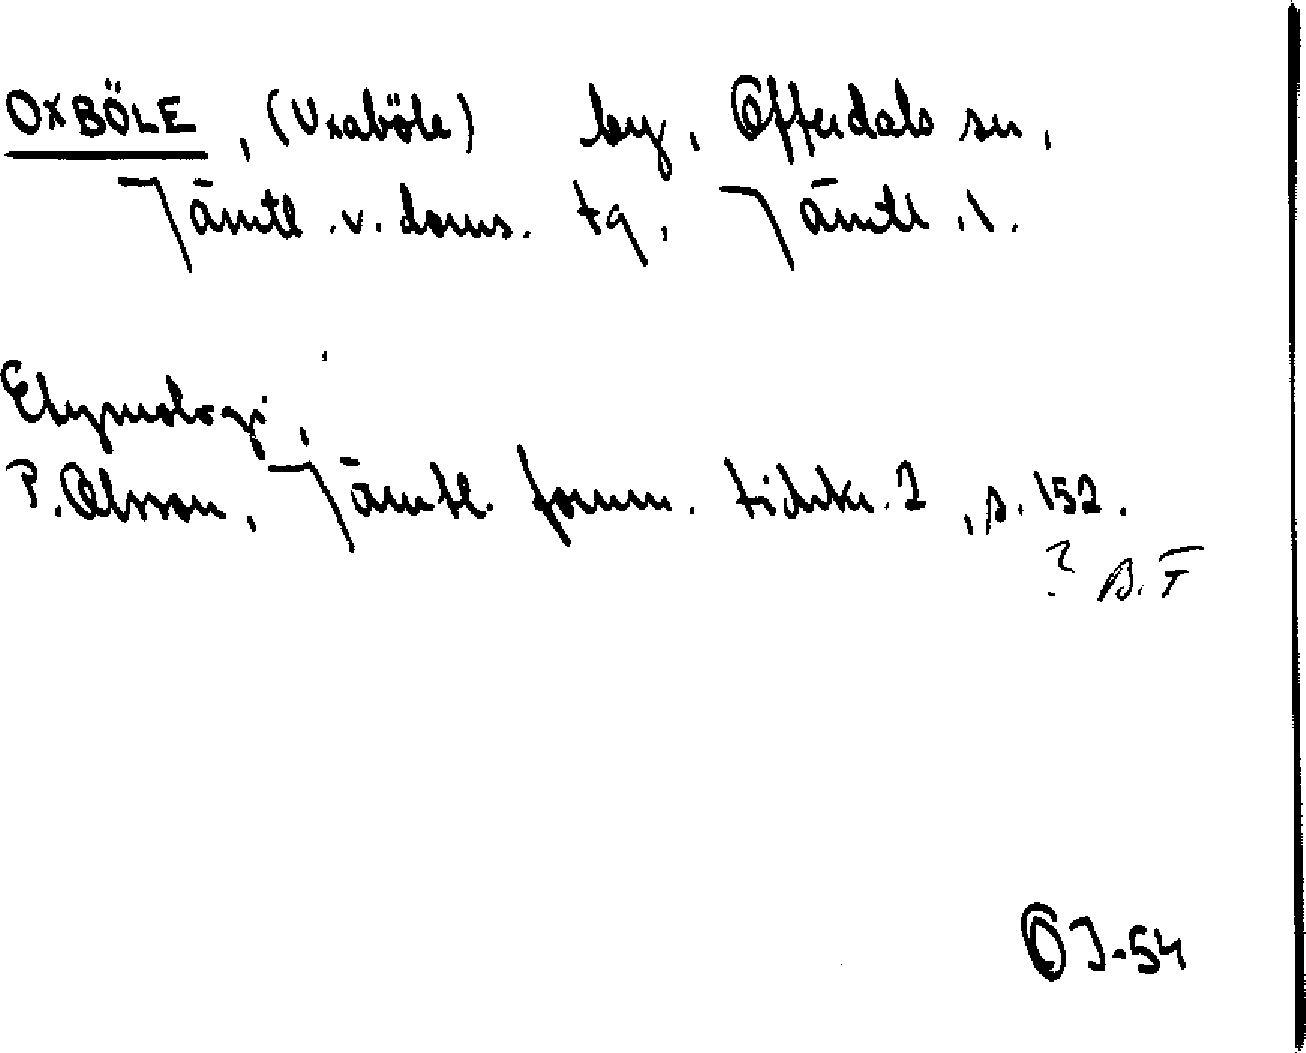 OXBÖLE, (Uxaböle) by, Offerdals sn,
Jämtl. v. doms. tg, Jämtl. l.
Etymologi,
P. Olsson, Jämtl. fornm. tidskr. 2, s. 152.
? B. F
OJ-54